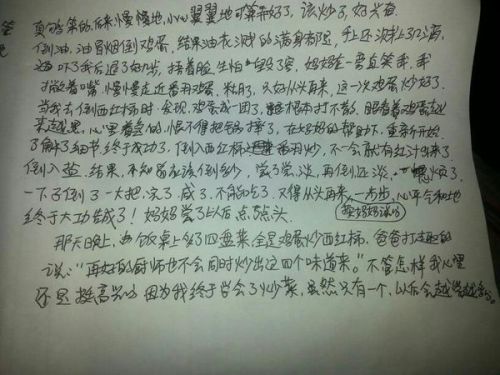 真够笨的,后来慢慢地,小心翼翼地可算弄好了,该炒了,好兴奋
倒油,油冒烟倒鸡蛋,结果油水溅的满身都是,手上还溅上了2滴,
吓了我后退了好几步,捂着脸,生怕"毁了容",妈妈在一旁直笑我,我
撇着嘴慢慢走近番羽鸡蛋,糊了,又得从头再来,这一次鸡蛋炒好了.
当我去倒西红柿时,发现鸡蛋成一团了,根本打不散,眼看着鸡蛋越
来越黑,心里着急的,恨不得把锅摔了,在妈妈的帮助下,重新开始,
了解了细节,终于成功了,倒入西红柿翻炒,不一会就有红汁出来了
倒入盐,结果,不知道应该倒多少,尝了尝,淡,再倒还淡,烦了,
一下子倒了一大把,完了,咸了,不能吃了,又得从头再来,一步步,心平气和地
终于大功告成了!妈妈尝了以后点点头.
那天晚上,饭桌上多了四盘菜全是鸡蛋炒西红柿,爸爸打趣的
说:"再好的厨师也不会同时炒出这四个味道来。"不管怎样我心里
还是挺高兴的,因为我终于学会了炒菜,虽然只有一个,以后会越学越多的。